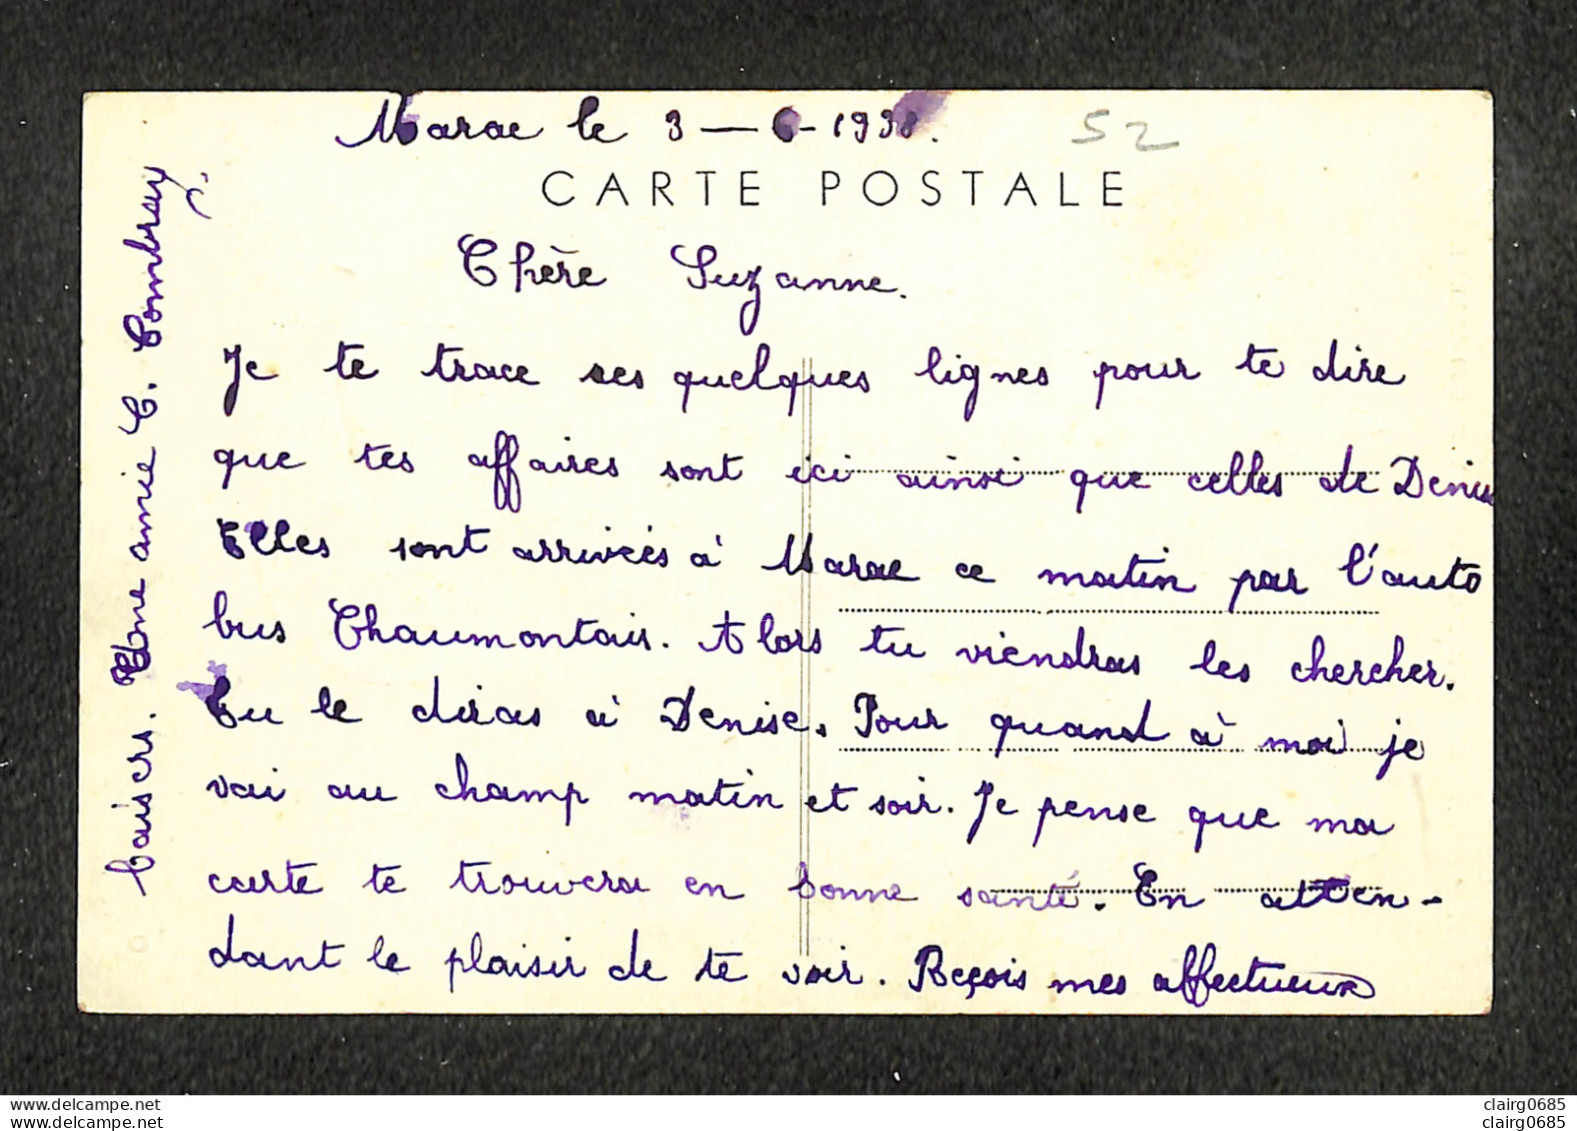 Marac le 3 — 6 - 1938.
52
CARTE POSTALE
Chère Suzanne.
Je te trace ses quelques lignes pour te dire
que tes affaires sont ici ainsi que celles de Denise
Elles sont arrivées à Marac ce matin par l'auto
bus Chaumontais. Alors tu viendras les chercher.
Tu le diras à Denise. Pour quand à moi je
vai au champ matin et soir. Je pense que ma
carte te trouvera en bonne santé. En atten-
dant le plaisir de te voir. Reçois mes affectueux
baisers. Une amie C. Combray
www.delcampe.net
www.delcampe.net
clairg0685
clairg0685